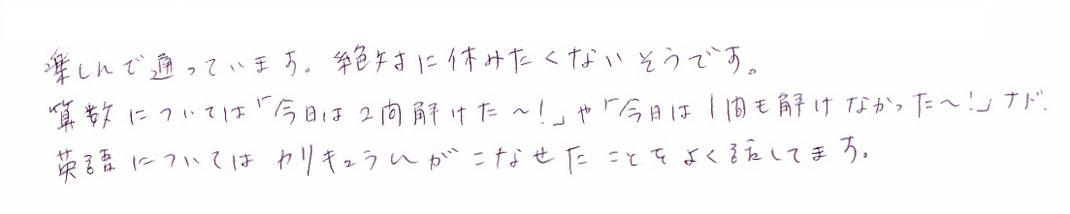 楽しんで通っています。絶対に休みたくないそうです。
算数については「今日は2問解けた〜!」や「今日は1問も解けなかった〜!」ナド.
英語についてはカリキュラムがこなせたことをよく話してます。